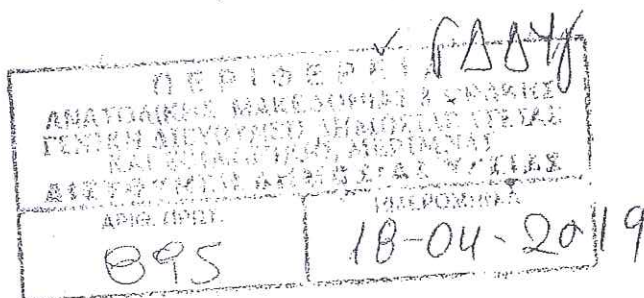 ΓΔΔΥ
ΠΕΡΙΦΕΡΕΙΑ
ΑΝΑΤΟΛΙΚΗΣ ΜΑΚΕΔΟΝΙΑΣ & ΘΡΑΚΗΣ
ΓΕΝΙΚΗ ΔΙΕΥΘΥΝΣΗ ΔΗΜΟΣΙΑΣ ΥΓΕΙΑΣ
ΚΑΙ ΜΕΡΙΜΝΑΣ
ΔΙΕΥΘΥΝΣΗ ΔΗΜΟΣΙΑΣ ΥΓΕΙΑΣ
ΑΡΙΘ. ΠΡΩΤ. ΗΜΕΡΟΜΗΝΙΑ
895 18-04-2019